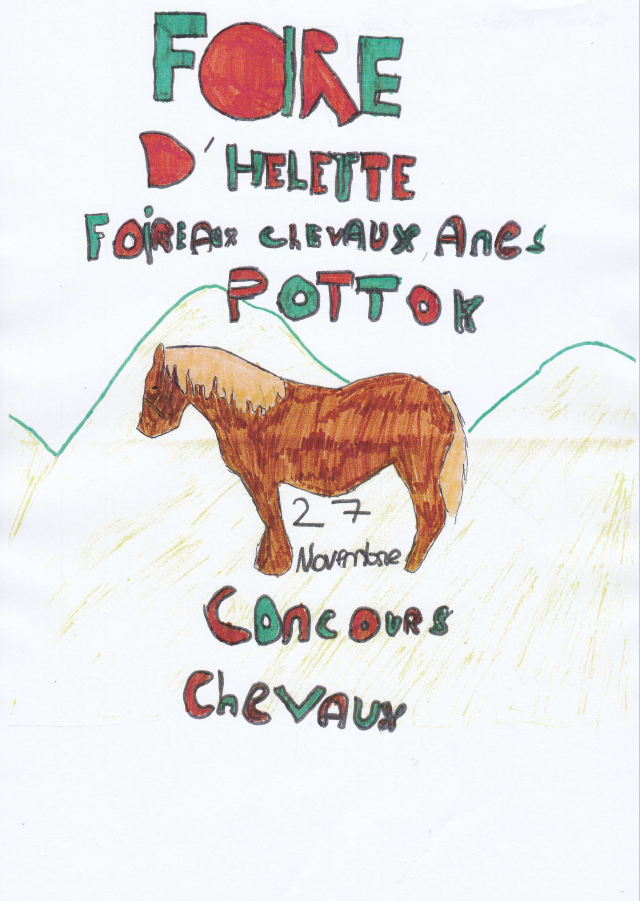 FOIRE
D'HELETTE
FOIRE AUX CHEVAUX ANES
POTTOK
27
Novembre
CONCOURS
CHEVAUX